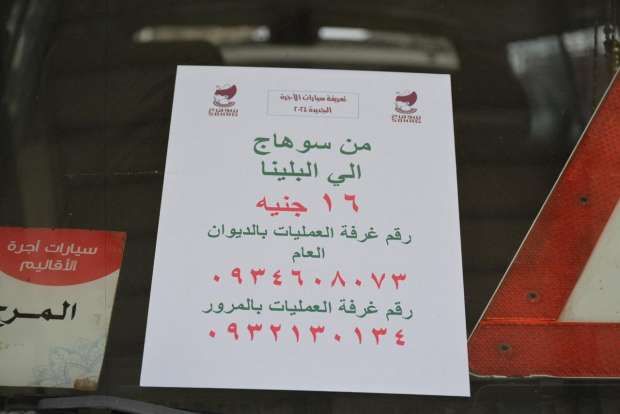 تعريفة سيارات الأجرة
الجديدة ٢٠٢٤
سوهاج
SOHAG
سوهاج
SOHAG
من سوهاج
الي البلينا
١٦ جنيه
رقم غرفة العمليات بالديوان
العام
٠٩٣٤٦٠٨٠٧٣
رقم غرفة العمليات بالمرور
٠٩٣٢١٣٠١٣٤
سيارات أجرة
الأقاليم